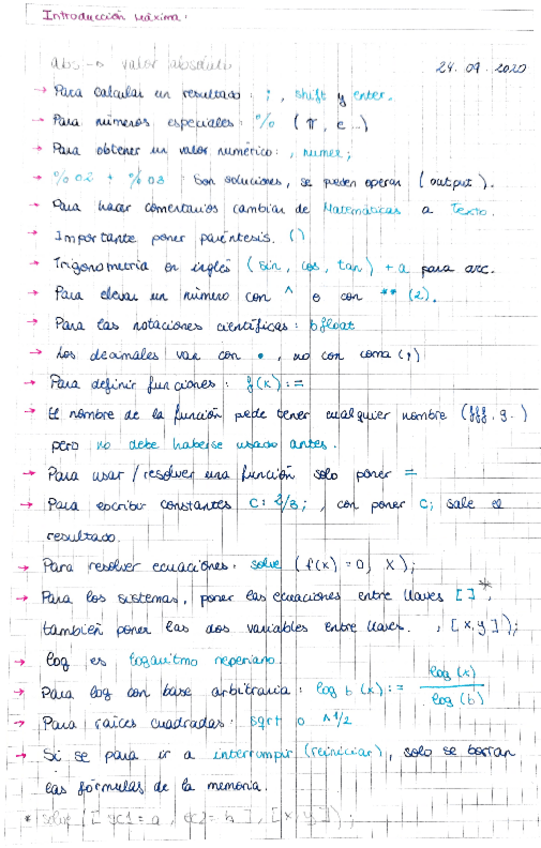 Introducción Máxima.
abs → valor absoluto 24.09.2020
→ Para calcular un resultado: ;, shift y enter.
→ Para números especiales: % (π, e...)
→ Para obtener un valor numérico: , numer;
→ %o2 + %o3 : Son soluciones, se pueden operar (output).
→ Para hacer comentarios cambiar de Matemáticas a Texto.
→ Importante poner paréntesis. ()
→ Trigonometría en inglés (sin, cos, tan) + a para arc.
→ Para elevar un número con ^ o con ** (2).
→ Para las notaciones científicas: bfloat
→ Los decimales van con •, no con coma (,)
→ Para definir funciones: f(x):=
→ El nombre de la función pede tener cualquier nombre (fff, g.)
pero no debe haberse usado antes.
→ Para usar/resolver una función solo poner =
→ Para escribir constantes C: 2/3;, con poner C; sale el
resultado.
→ Para resolver ecuaciones. solve (f(x)=0, x);
→ Para los sistemas, poner las ecuaciones entre llaves [ ]*,
también poner las dos variables entre llaves. , [x,y]);
→ log es logaritmo neperiano.
→ Para log con base arbitraria: log b (x):= log (x) / log (b)
→ Para raíces cuadradas: sqrt o ^1/2
→ Si se para ir a interrumpir (reiniciar), solo se borran
las fórmulas de la memoria.
* solve ([ec1=a, ec2=b], [x,y]);